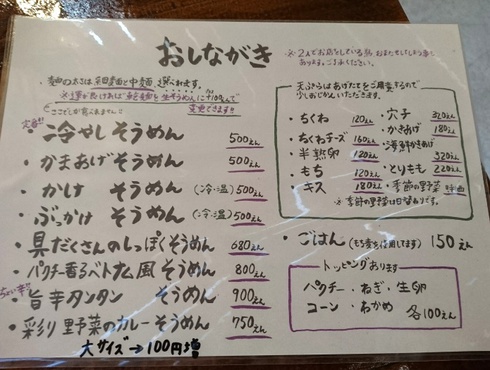 おしながき
※2人でお店をしている為、おまたせしてしまう事も
あります。ご了承ください。
・麺の太さは、細麺と中麺、選べます。
ここでしか食べれません
変更できます!!
定番!!
・冷やしそうめん 500えん
・かまあげそうめん 500えん
・かけ そうめん (冷・温) 500えん
・ぶっかけ そうめん (冷・温) 500えん
・具だくさんのしっぽくそうめん 680えん
・パクチー香るベトナム風そうめん 800えん
ちょい辛
・旨辛タンタン そうめん 900えん
・彩り野菜のカレーそうめん 750えん
大サイズ→100円増
天ぷらはあげたてをご用意するので
少しおじかんいただきます。
・ちくわ 120えん
・ちくわチーズ 160えん
・半熟卵 180えん
・もち 120えん
・キス 180えん
・穴子 320えん
・かきあげ 180えん
・海鮮かきあげ 320えん
・とりもも 220えん
・季節の野菜 時価
※季節の野菜は日替わりです。
・ごはん(もち麦を使用してます) 150えん
トッピングあります
パクチー・ねぎ・生卵
コーン・わかめ 各100えん